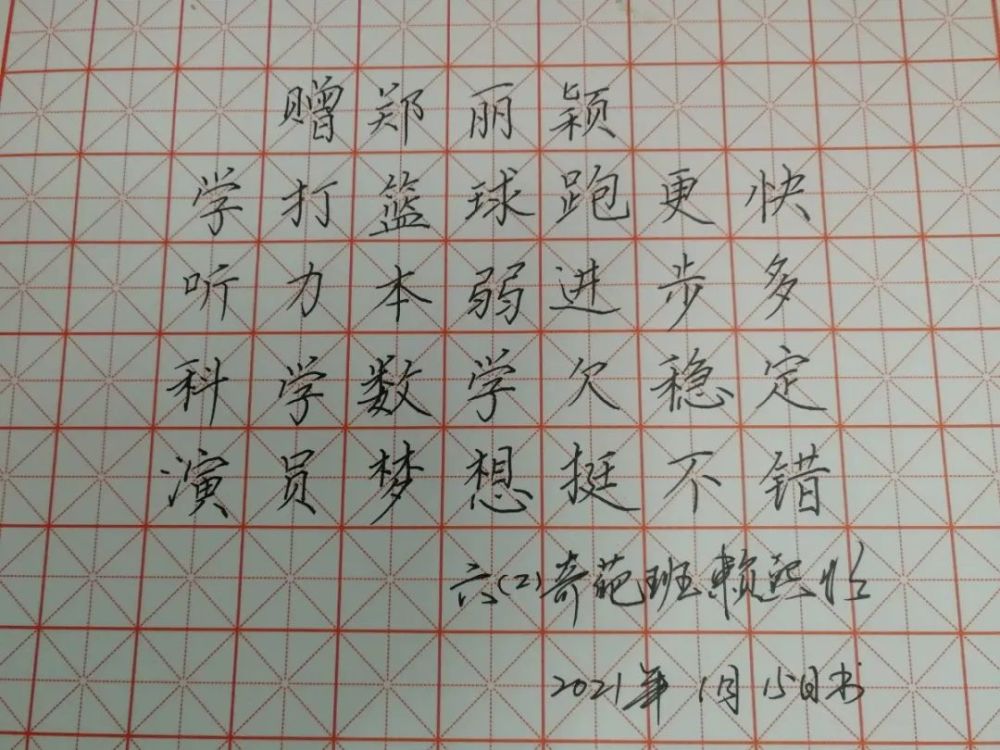 赠郑丽颖
学打篮球跑更快
听力本弱进步多
科学数学欠稳定
演员梦想挺不错
六(2)奇葩班赖
2021年1月15日书